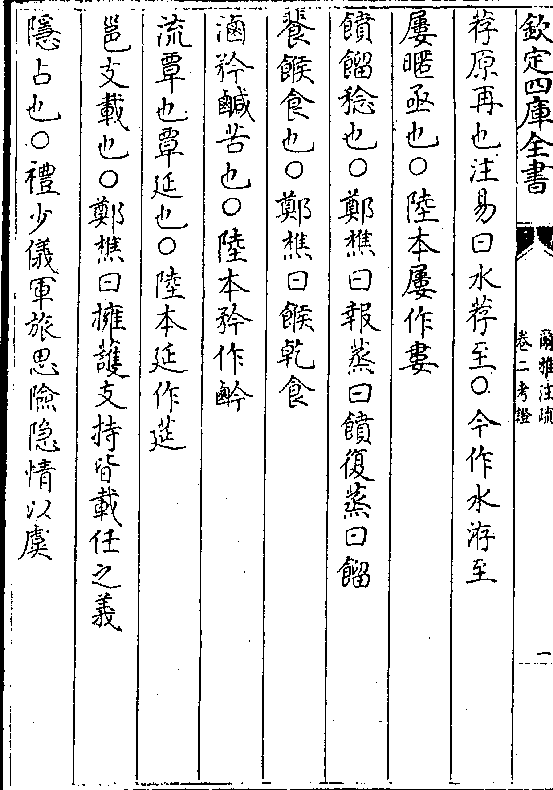 欽定四庫全書
爾雅注疏
卷二考證
一
荐原再也注易曰水荐至○今作水洊至
屢暱亟也○陸本屢作婁
饙餾稔也○鄭樵曰報蒸曰饙復蒸曰餾
餥餱食也○鄭樵曰餱乾食
滷矜鹹苦也○陸本矜作㱈
流覃也覃延也○陸本延作莚
邕支載也○鄭樵曰擁䕶支持皆載任之義
隱占也○禮少儀軍旅思險隐情以虞